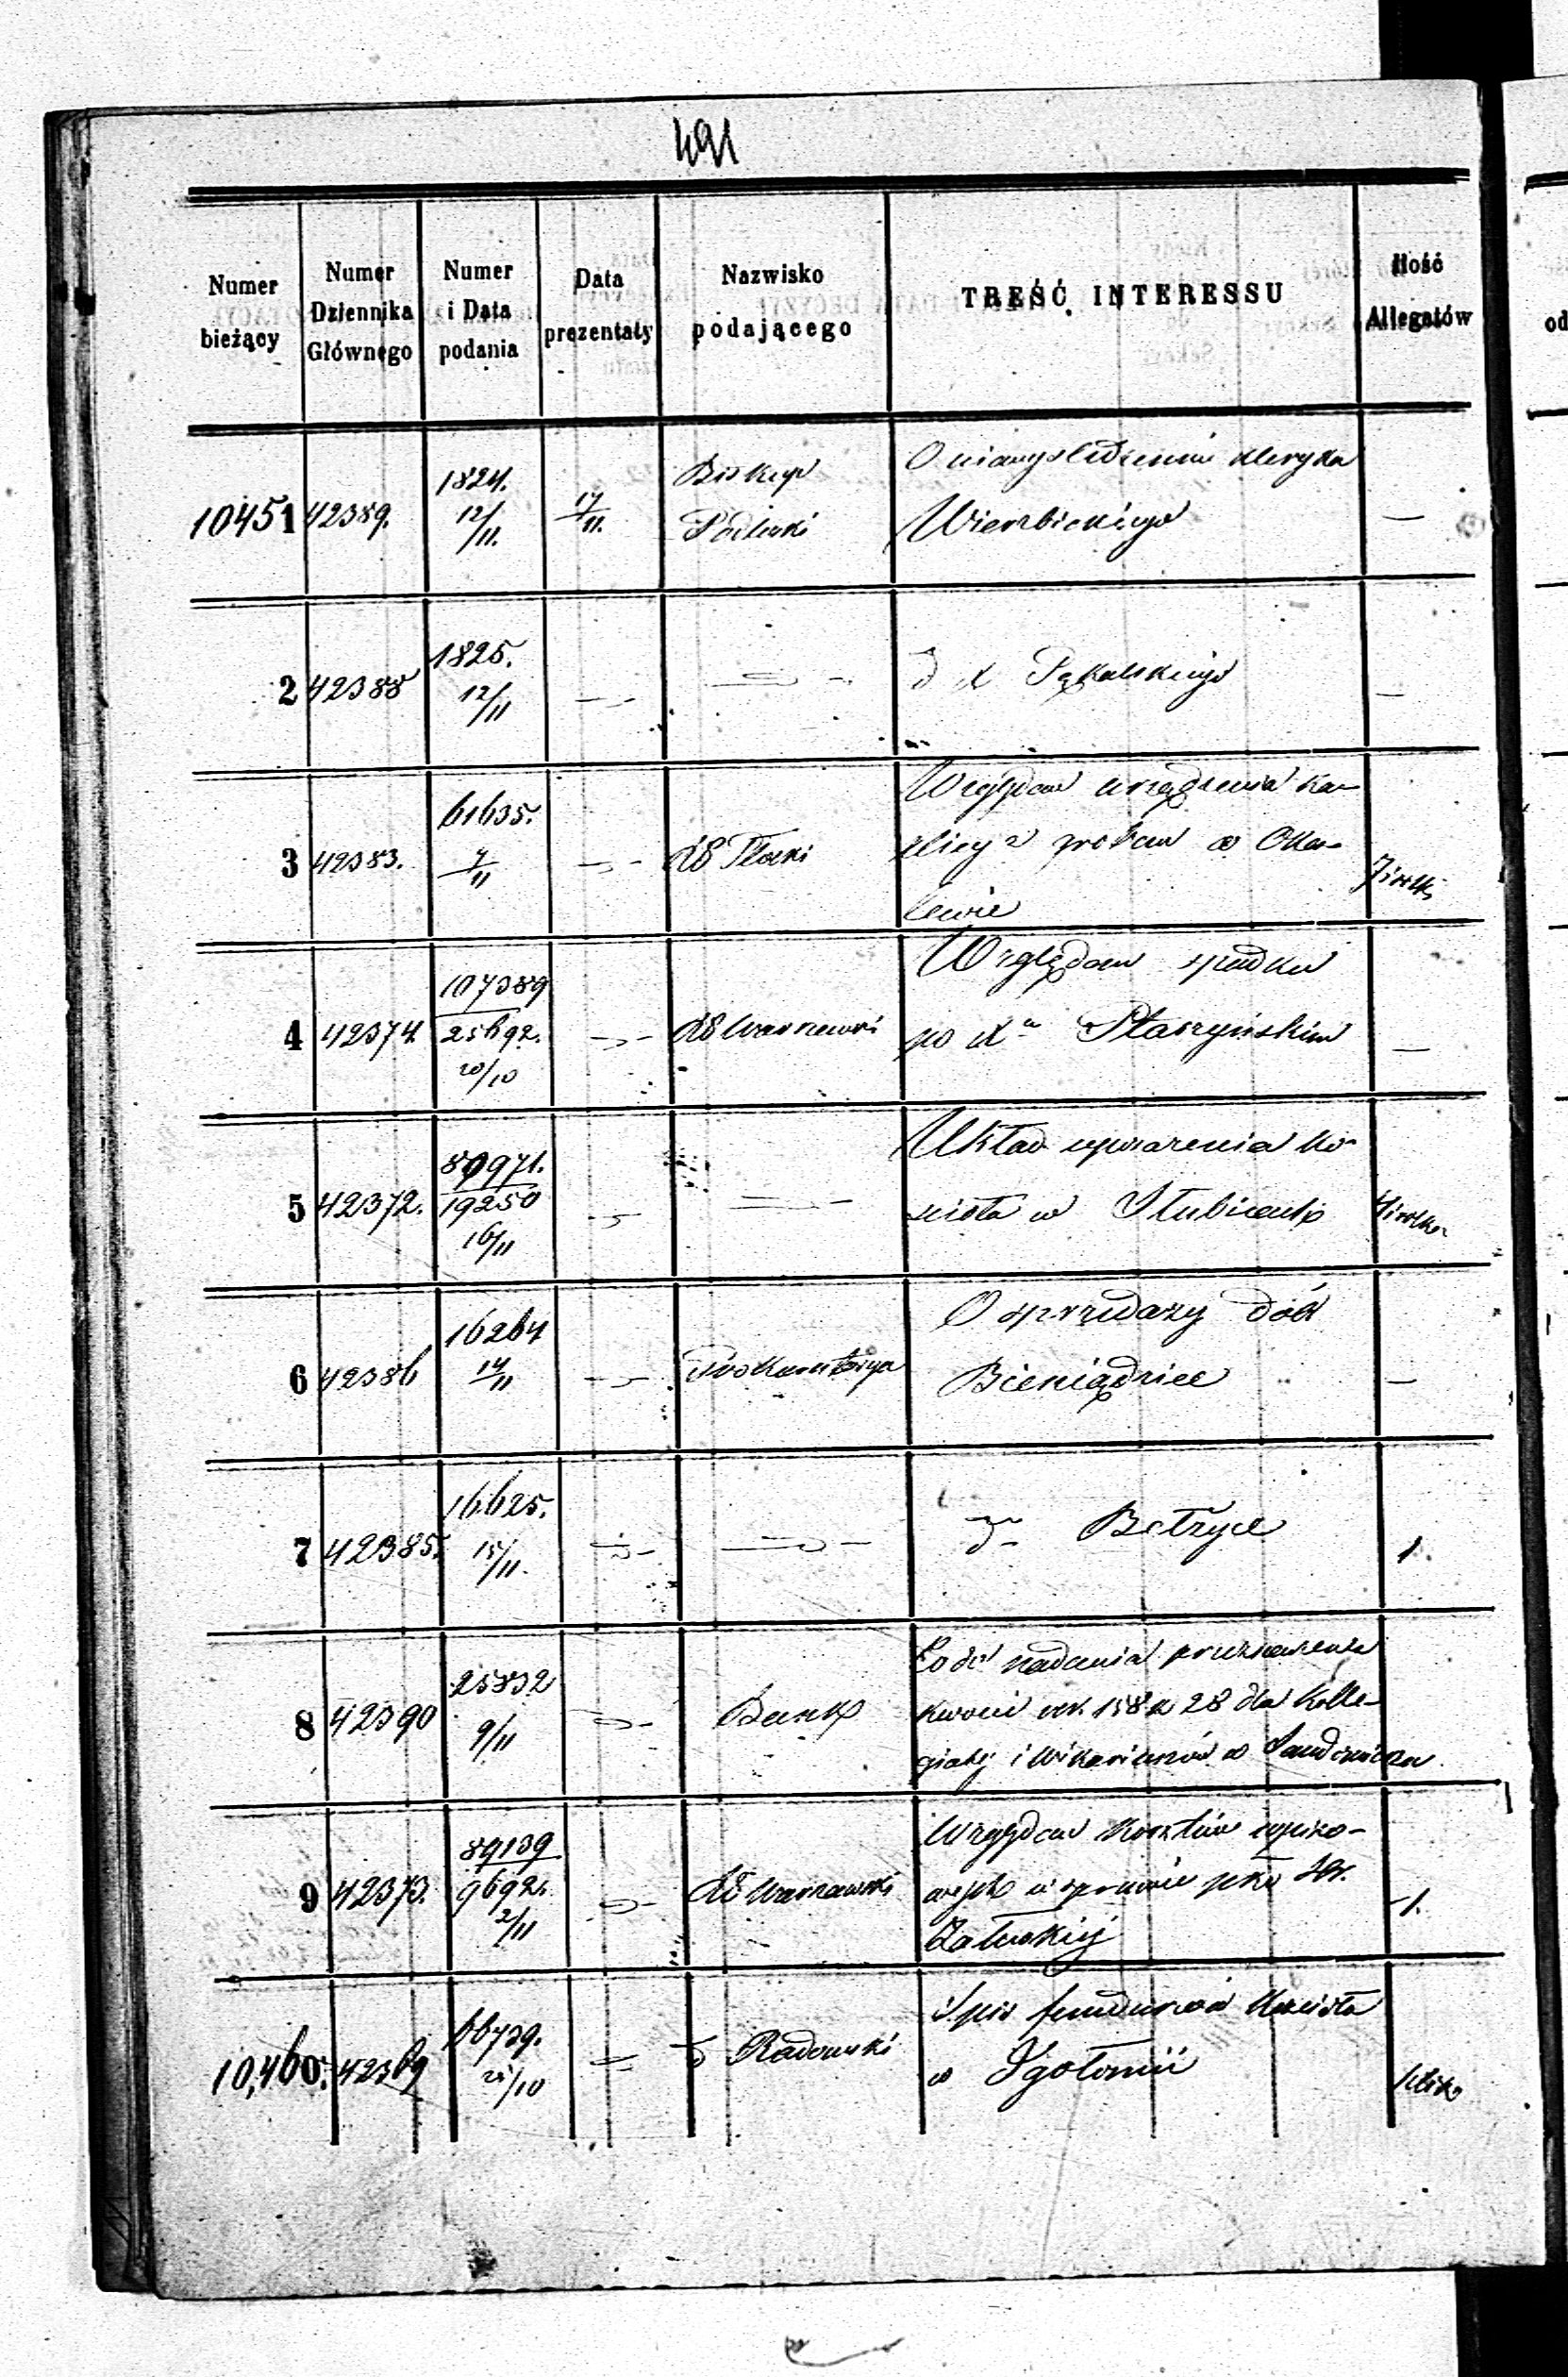 491
Numer bieżący
Numer Dziennika Głównego
Numer i Data podania
Data prezentaty
Nazwisko podającego
TREŚĆ INTERESSU
Ilość Allegatów
10451 42389. 1824. 12/11. 17/11. Biskup Podlaski
O niewyśledzeniu kleryka
Wierzbickiego —
2 42388 1825. 12/11 — — dº X Pękalskiego —
3 42383. 61635. 7/11 — RG Płocki
Względem urządzenia
w Oka-
lewie
4 42374. 107389 / 25692. 20/10 — RG Warszawski
Względem spadku
po Xu Staszyńskim —
5 42372. 80971. / 19250 16/11 — —
Układ uposażenia ko-
ścioła w
6 42386 16264 14/11 — Prokuratorya
O sprzedaży dóbr
Bieniądzice —
7 42385. 16625. 15/11. — — dº Bełżyce 1.
8 42390 25832 9/11 — Bank
Co do nadania przeznaczenia
kwocie rsr. 158 k 28 dla Kolle-
giaty i Wikariuszów w Sandomierzu
9 42373. 89139 / 9692. 2/11 — RG Warszawski
Względem kosztów
w sprawie pko
Załuskiej 1.
10,460. 42369 66739. 25/10 — dº Radomski
Spis funduszów Kościoła
w Igołomii